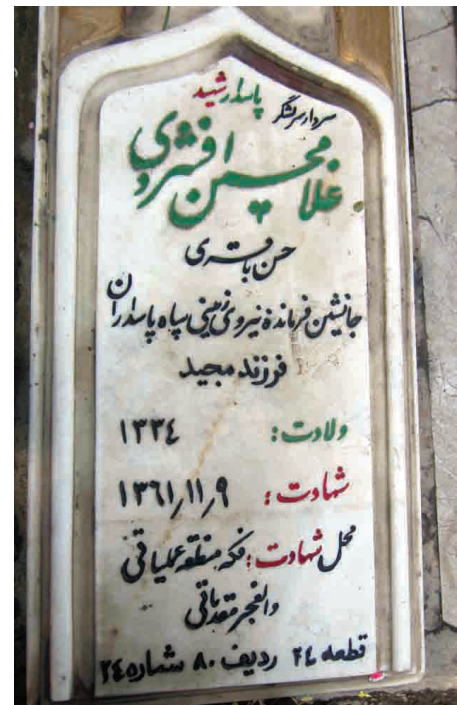 پاسدار شهید
سردار سرلشگر
غلامحسین افشردی
حسن باقری
جانیشن فرمانده نیروی زمینی سپاه پاسداران
فرزند مجید
ولادت: ۱۳۳٤
شهادت: ۱۳٦۱٫۱۱٫۹
محل شهادت: فکه منطقه عملیاتی
والفجر مقدماتی
قطعه ۲٤ ردیف ۸۰ شماره ۲٤